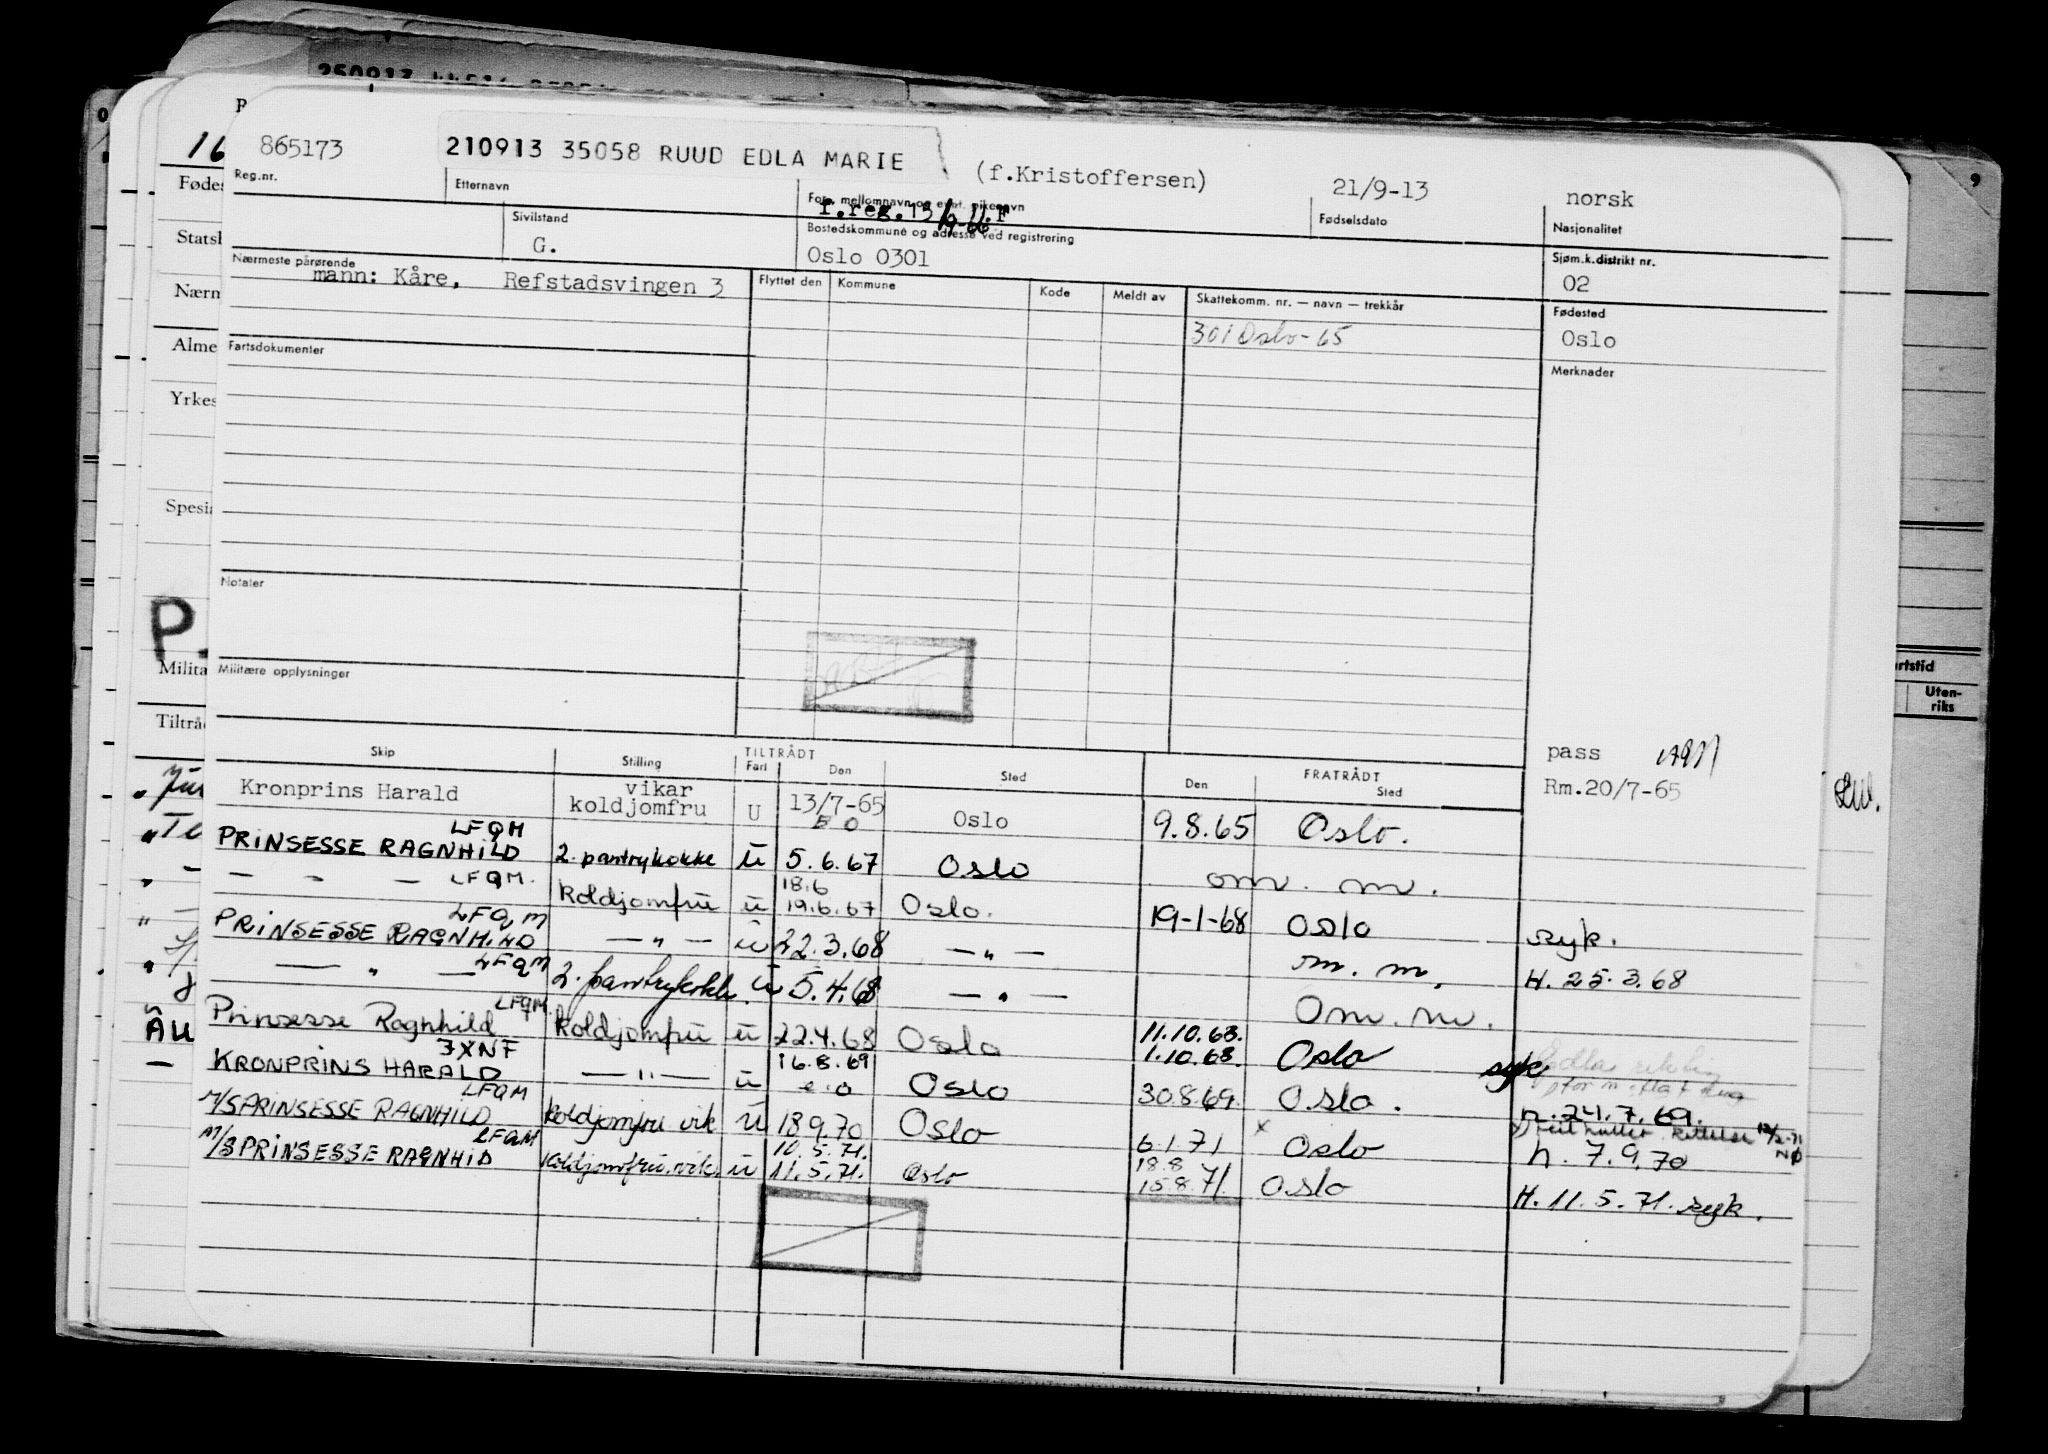 865173 210913 35058 RUUD EDLA MARIE (f.Kristoffersen) 21/9-13 norsk
Reg.nr. Etternavn Forn. mellomnavn og evnt. pikenavn Fødselsdato Nasjonalitet
f.reg.13
Sivilstand Bostedskommune og adresse ved registrering Sjøm.k.distrikt nr.
G. Oslo 0301 02
Nærmeste pårørende Flyttet den Kommune Kode Meldt av Skattekomm. nr. — navn — trekkår Fødested
mann: Kåre, Refstadsvingen 3
301 Oslo-65 Oslo
Fartsdokumenter Merknader
Notater
Militære opplysninger
pass
TILTRÅDT FRATRÅDT
Skip Stilling Fart Den Sted Den Sted Rm.20/7-65
Kronprins Harald vikar koldjomfru U 13/7-65 Oslo 9.8.65 Oslo.
LFQM
PRINSESSE RAGNHILD 2. pantrykokke u 5.6.67 Oslo om. m.
— " — LFQM. koldjomfru u 18.6 19.6.67 Oslo. 19-1-68 Oslo syk.
LFQM
PRINSESSE RAGNHILD — " — u 22.3.68 — " — m. m. H. 25.3.68
— " — LFQM 2. pantrykokke. u 5.4.68 — " — Om. m.
LFQM.
Prinsesse Ragnhild koldjomfru u 22.4.68 Oslo 11.10.68. 1.10.68. Oslo syk
3XNF
KRONPRINS HARALD — " — u 16.8.69 Oslo 30.8.69. Oslo. n. 24.7.69.
LFQM
M/S PRINSESSE RAGNHILD koldjomfru vik u 18.9.70 Oslo 6.1.71 x Oslo n. 7.9.70
LFQM
M/S PRINSESSE RAGNHID koldjomfru.vik. u 10.5.71. 11.5.71. Oslo 18.8 15.8.71. Oslo H. 11.5.71. syk.
16
Fødes
Statsb
Nærm
Alme
Yrkes
Spesia
P.
Milita
Tiltrå
rtstid
Uten-
riks